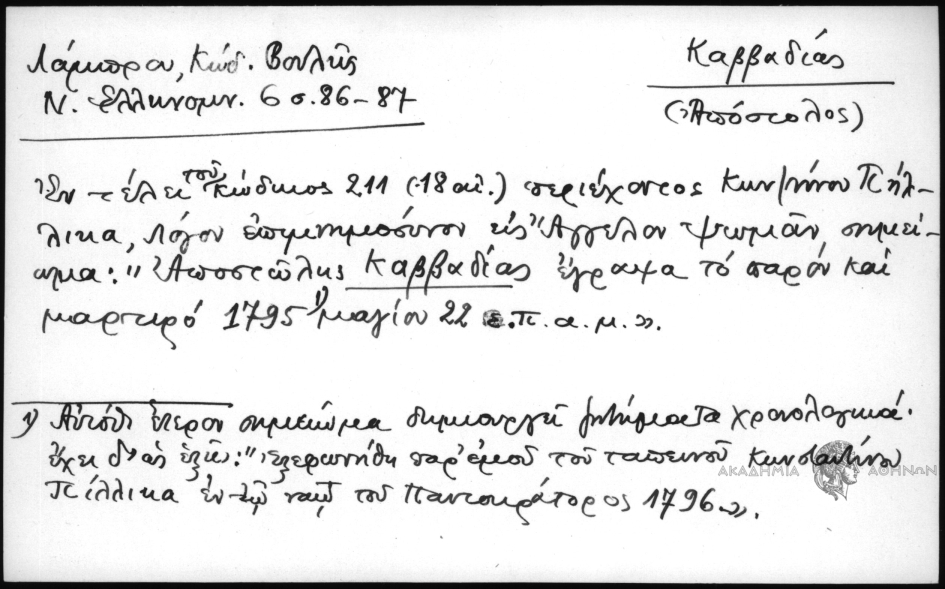 Λάμπρου, Κώδ. Βουλῆς
Ν. Ἑλληνομν. 6 σ. 86-87
Καββαδίας
(Ἀπόστολος)
Ἐν τέλει τοῦ κώδικος 211 (18 αἰ.) περιέχοντος Κων/τίνου Πήλ-
λικα, λόγον ἐπιμνημόσυνον εἰς Ἄγγελον Ψωμᾶν, σημεί-
ωμα: "Ἀποστώλης Καββαδίας ἔγραψα τό παρόν καί
μαρτιρό 1795 1) μαγίου 22 ε.π.α.μ.».
1) Αὐτόθι ἕτερον σημείωμα δημιουργεῖ ζητήματα χρονολογικά.
ἔχει δ' ὡς ἑξῆς: "ἐξεφωνήθη παρ' ἐμοῦ τοῦ ταπεινοῦ Κωνσταντίνου
Πίλλικα ἐν τῷ ναῷ τοῦ Παντοκράτορος 1796».
ΑΚΑΔΗΜΙΑ ΑΘΗΝΩΝ